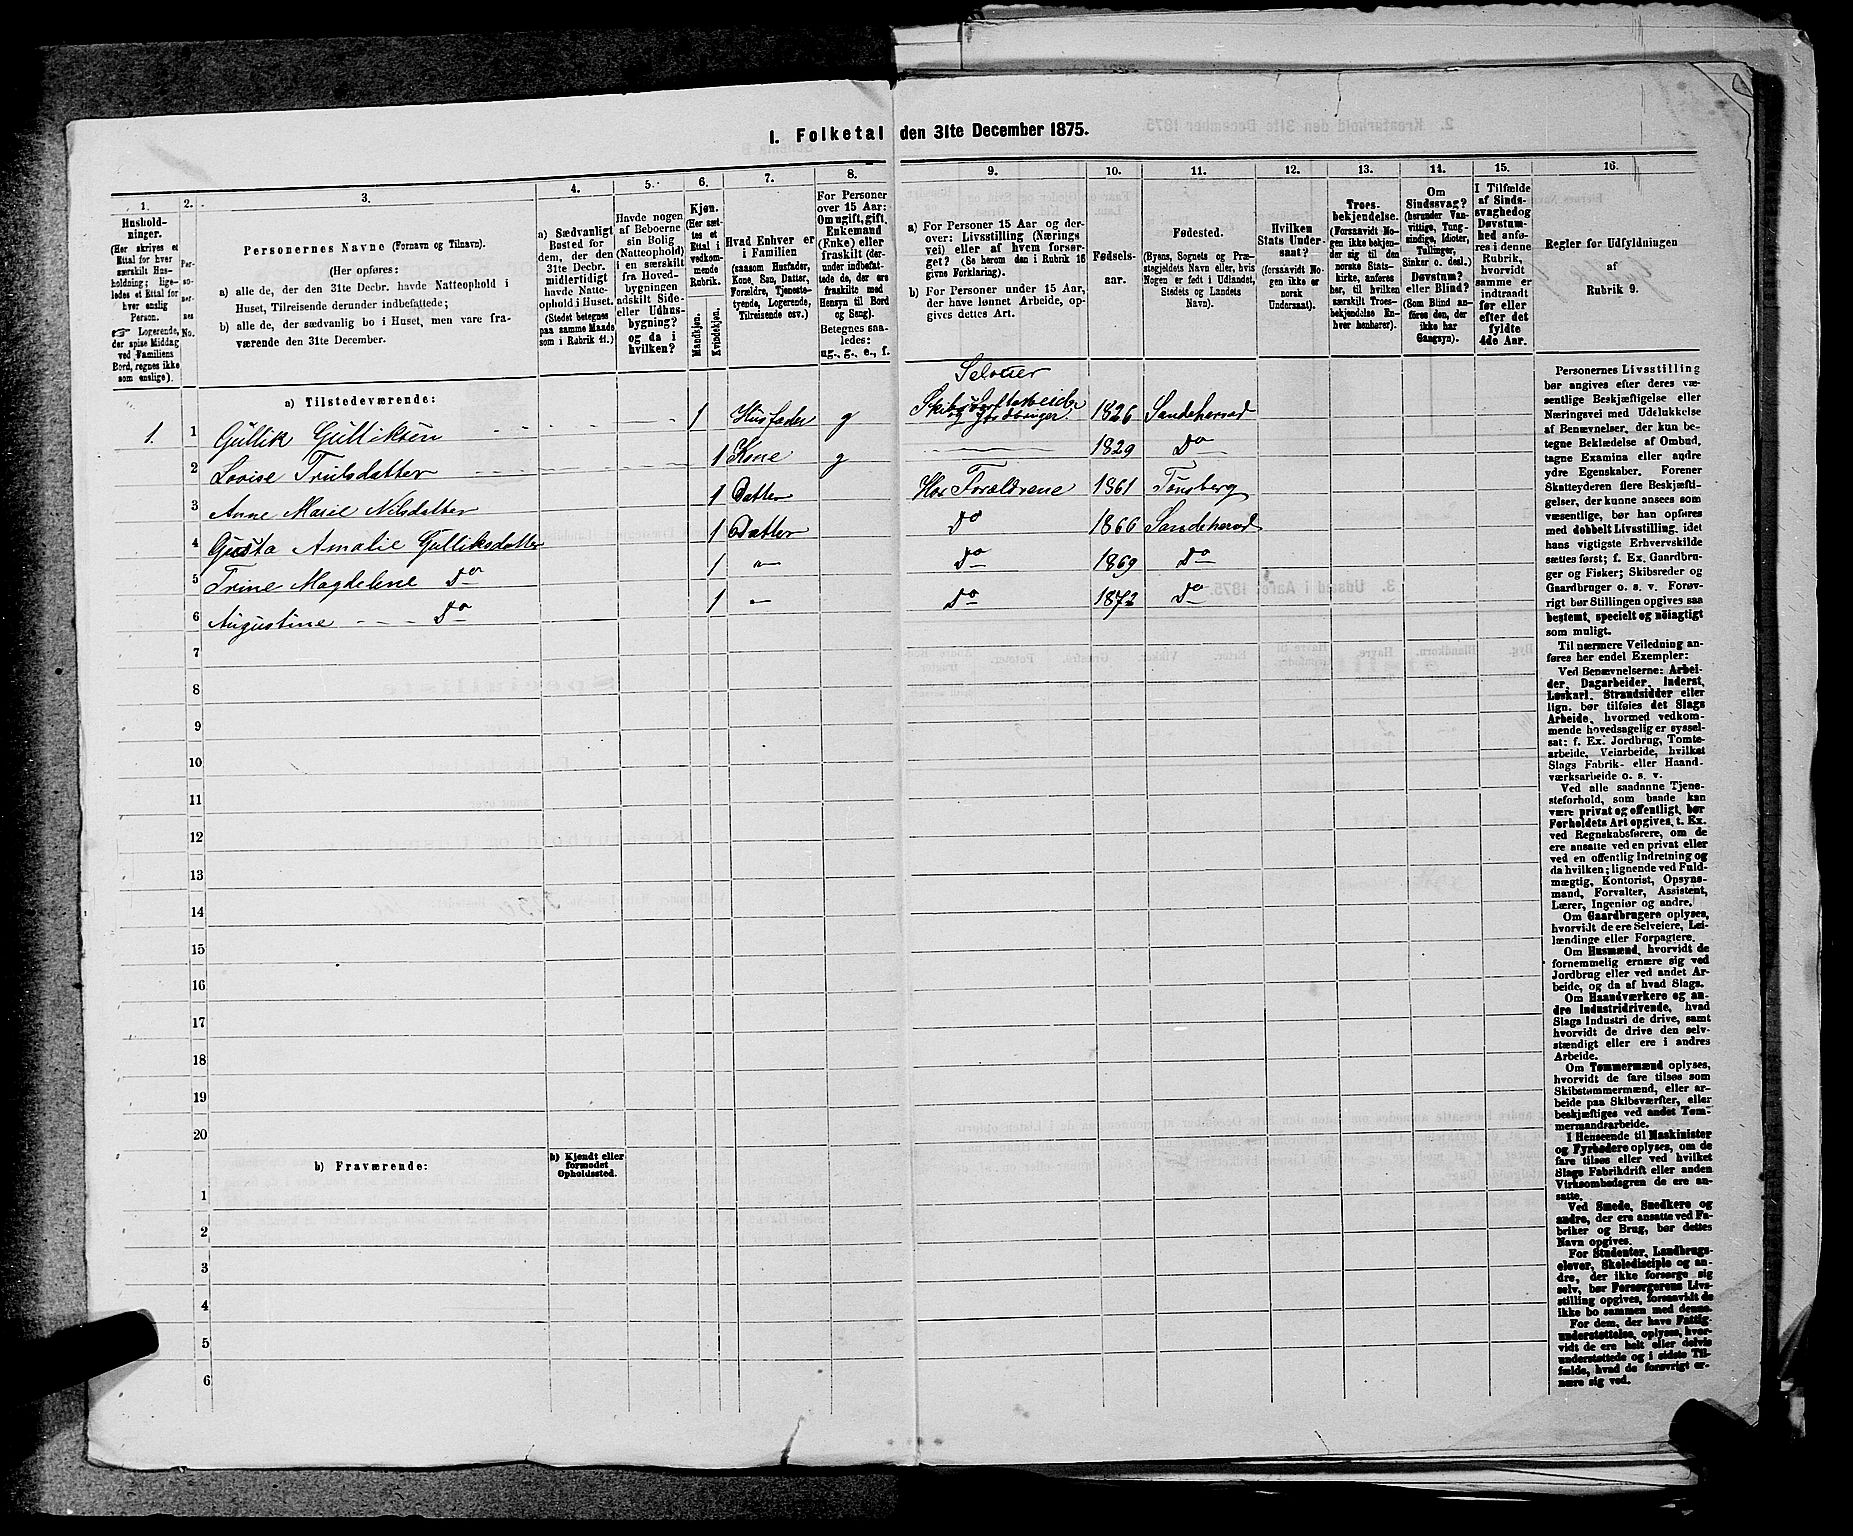 I. Folketal den 31te December 1875.
1.
Hushold-
ninger.
(Her skrives et
Ettal for hver
særskilt Hus-
holdning; lige-
ledes et Ettal for
hver enslig
Person.
☞ Logerende,
der spise Middag
ved Familiens
Bord, regnes ikke
som enslige).
2.
Per-
so-
ner-
nes
No.
3.
Personernes Navne (Fornavn og Tilnavn).
(Her opføres:
a) alle de, der den 31te Decbr. havde Natteophold i
Huset, Tilreisende derunder indbefattede;
b) alle de, der sædvanlig bo i Huset, men vare fra-
værende den 31te December.
4.
a) Sædvanligt
Bosted for
dem, der den
31te Decbr.
midlertidigt
havde Natte-
ophold i Huset.
(Stedet betegnes
paa samme Maade
som i Rubrik 11.)
5.
Havde nogen
af Beboerne
sin Bolig
(Natteophold)
i en særskilt
fra Hoved-
bygningen
adskilt Side-
eller Udhus-
bygning?
og da i
hvilken?
6.
Kjøn.
(Her sæt-
tes et
Ettal i
vedkom-
mende
Rubrik.
Mandkjøn.
Kvindekjøn.
7.
Hvad Enhver er
i Familien
(saasom Husfader,
Kone, Søn, Datter,
Forældre, Tjeneste-
tyende, Logerende,
Tilreisende osv.)
8.
For Personer
over 15 Aar:
Om ugift, gift,
Enkemand
(Enke) eller
fraskilt (der-
under indbefat-
tede de, der ere
fraskilte med
Hensyn til Bord
og Seng).
Betegnes saa-
ledes:
ug., g., e., f.
9.
a) For Personer 15 Aar og der-
over: Livsstilling (Nærings
vei) eller af hvem forsør-
get? (Se herom den i Rubrik 16
givne Forklaring).
b) For Personer under 15 Aar,
der have lønnet Arbeide, op-
gives dettes Art.
10.
Fødsels-
aar.
11.
Fødested.
(Byens, Sognets og Præ-
stegjeldets Navn eller, hvis
Nogen er født i Udlandet,
Stedets og Landets
Navn).
12.
Hvilken
Stats Under-
saat?
(forsaavidt No-
gen ikke er
norsk
Undersaat).
13.
Troes-
bekjendelse.
(Forsaavidt No-
gen ikke bekjen-
der sig til den
norske Stats-
kirke, anføres
her, til hvilken
særskilt Troes-
bekjendelse En-
hver henhører).
14.
Om
Sindssvag?
(herunder Van-
vittige, Tung-
sindige, Idioter,
Tullinger,
Sinker o. desl.)
Døvstum?
eller Blind?
(Som Blind an-
føres den, der
ikke har
Gangsyn).
15.
I Tilfælde
af Sinds-
svaghed og
Døvstum-
hed anfø-
res i denne
Rubrik,
hvorvidt
samme er
indtraadt
før eller
efter det
fyldte
4de Aar.
16.
Regler for Udfyldningen
af
Rubrik 9.
a) Tilstedeværende:
Selveier
1. 1 Gullik Gulliksen 1 Husfader g Skibstomt arbeider og Jordbruger. 1826 Sandeherred
2 Lovise Trulsdatter 1 Kone g 1829 Do
3 Anne Marie Nilsdatter 1 Datter Hos Forældrene 1861 Tønsberg
4 Gusta Amalie Gulliksdatter 1 Datter Do 1866 Sandeherred
5 Trine Magdelene Do 1 " Do 1869 Do
6 Augustine Do 1 " Do 1872 Do
7
8
9
10
11
12
13
14
15
16
17
18
19
20
b) Fraværende:
b) Kjendt eller
formodet
Opholdssted.
1
2
3
4
5
6
Personernes Livsstilling
bør angives efter deres væ-
sentlige Beskjæftigelse eller
Næringsvei med Udelukkelse
af Benævnelser, der kun be-
tegne Beklædelse af Ombud,
tagne Examina eller andre
ydre Egenskaber. Forener
Skatteyderen flere Beskjæfti-
gelser, der kunne ansees som
væsentlige, bør han opføres
med dobbelt Livsstilling, idet
hans vigtigste Erhvervskilde
sættes først; f. Ex. Gaardbru-
ger og Fisker; Skibsreder og
Gaardbruger o. s. v. Forøv-
rigt bør Stillingen opgives saa
bestemt, specielt og nøiagtigt
som muligt.
Til nærmere Veiledning an-
føres her endel Exempler:
Ved Benævnelserne: Arbei-
der, Dagarbeider, Inderst,
Løskarl, Strandsidder eller
lign. bør tilføies det Slags
Arbeide, hvormed vedkom-
mende hovedsagelig er syssel-
sat: f. Ex. Jordbrug, Tomte-
arbeide, Veiarbeide, hvilket
Slags Fabrik- eller Haand-
værksarbeide o. s. v.
Ved alle saadanne Tjene-
steforhold, som baade kan
være privat og offentligt, bør
Forholdets Art opgives, t. Ex.
ved Regnskabsførere, om de
ere ansatte ved en privat eller
ved en offentlig Indretning og
da hvilken; lignende ved Fuld-
mægtig, Kontorist, Opsyns-
mand, Forvalter, Assistent,
Lærer, Ingeniør og andre.
Om Gaardbrugere oplyses,
hvorvidt de ere Selveiere, Lei-
lændinge eller Forpagtere.
Om Husmænd, hvorvidt de
fornemmelig ernære sig ved
Jordbrug eller ved andet Ar-
beide, og da af hvad Slags.
Om Haandværkere og an-
dre Industridrivende, hvad
Slags Industri de drive, samt
hvorvidt de drive den selv-
stændigt eller ere i andres
Arbeide.
Om Tømmermænd oplyses,
hvorvidt de fare tilsøs som
Skibstømmermænd, eller ar-
beide paa Skibsværfter, eller
beskjæftiges ved andet Tøm-
mermandsarbeide.
I Henseende til Maskinister
og Fyrbødere oplyses, om de
fare tilsøs eller ved hvilket
Slags Fabrikdrift eller anden
Virksombedsgren de ere an-
satte.
Ved Smede, Snedkere og
andre, der ere ansatte ved Fa-
briker og Brug, bør dettes
Navn opgives.
For Studenter, Landbrugs-
elever, Skoledisciple og an-
dre, der ikke forsørge sig
selv, bør Forsørgerens Livs-
stilling opgives, forsaavidt de
ikke bo sammen med denne.
For dem, der have Fattig-
understøttelse, oplyses, hvor-
vidt de ere helt eller delvis
understøttede og i sidste Til-
fælde, hvad de forøvrigt er-
nære sig ved.